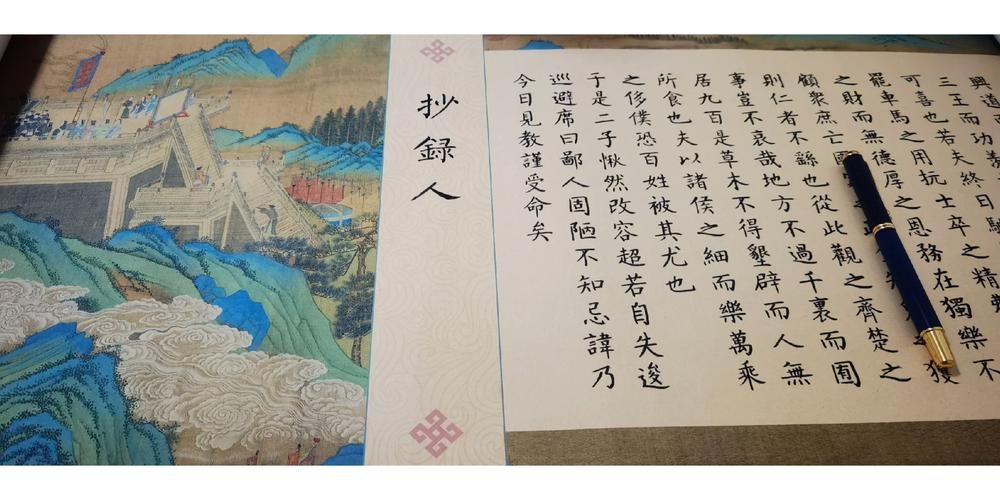 興道而
三王而功羨
可喜也若夫終日
罷車馬之用抏士卒之精
之財而無德厚之恩務在獨樂不
顧衆庶亡國之獲
則仁者不繇也從此觀之齊楚之
事豈不哀哉地方不過千裏而囿
居九百是草木不得墾辟而人無
所食也夫以諸侯之細而樂萬乘
之侈僕恐百姓被其尤也
于是二子愀然改容超若自失逡
巡避席曰鄙人固陋不知忌諱乃
今日見教謹受命矣
抄録人